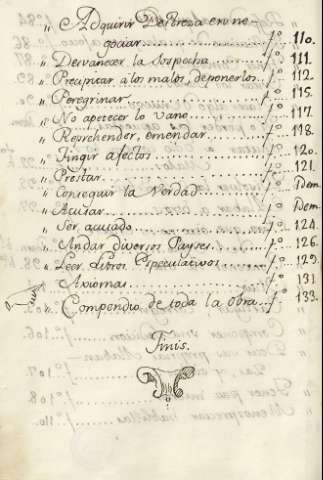 „ Adquirir Destreza en ne-
gociar ........ fº 110.
„ Desvanecer la sospecha .... fº 111.
„ Precipitar a los malos, deponerlos. fº 112.
„ Peregrinar ........ fº 115.
„ No apetecer lo vano ........ fº 117.
„ Reprehender, emendar ........ fº 118.
„ Fingir afectos ........ fº 120.
„ Prestar ........ fº 121.
„ Conseguir la Verdad ........ fº Dem.
„ Acusar ........ fº Dem.
„ Ser acusado ........ fº 124.
„ Andar diversos Payses ........ fº 126.
„ Leer Libros Especulativos ........ fº 129.
„ Axiomas ........ fº 131.
„ Compendio de toda la obra ... fº 133.
Finis.